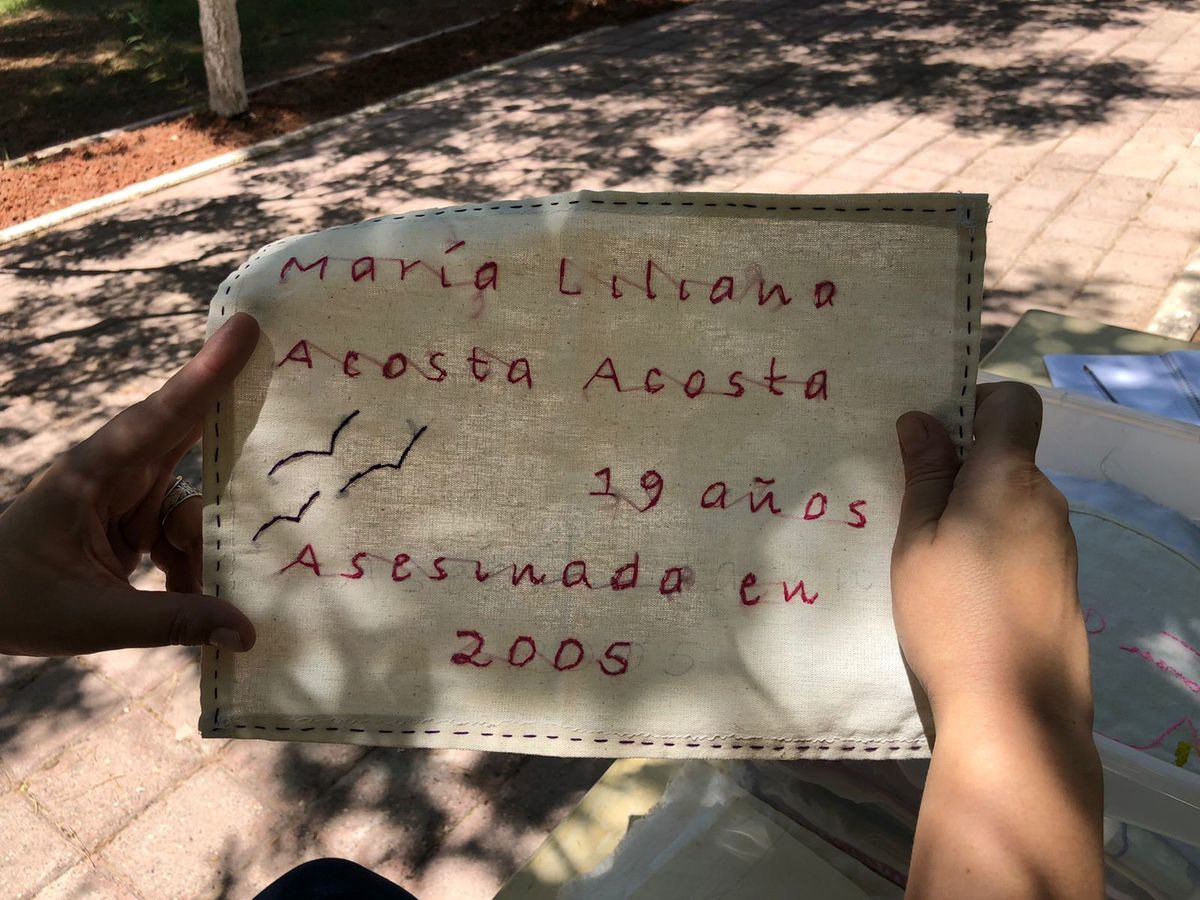 María Liliana
Acosta Acosta
19 años
Asesinada en
2005